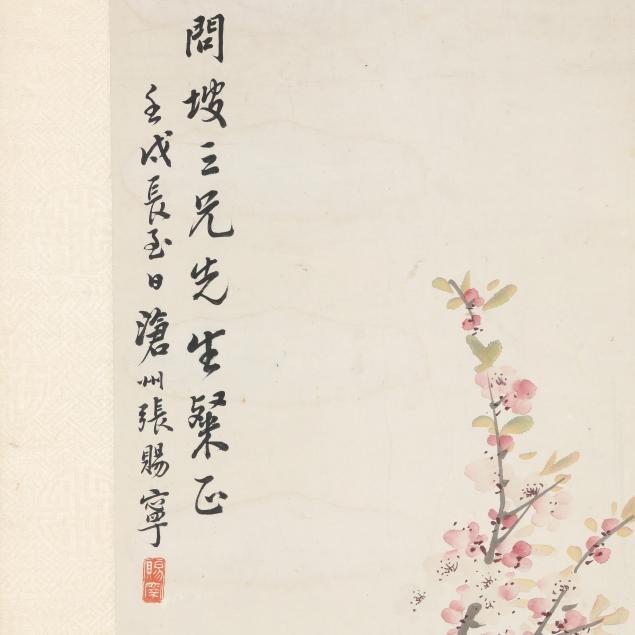 問坡三兄先生粲正
壬戌長至日滄州張賜寧
賜寧